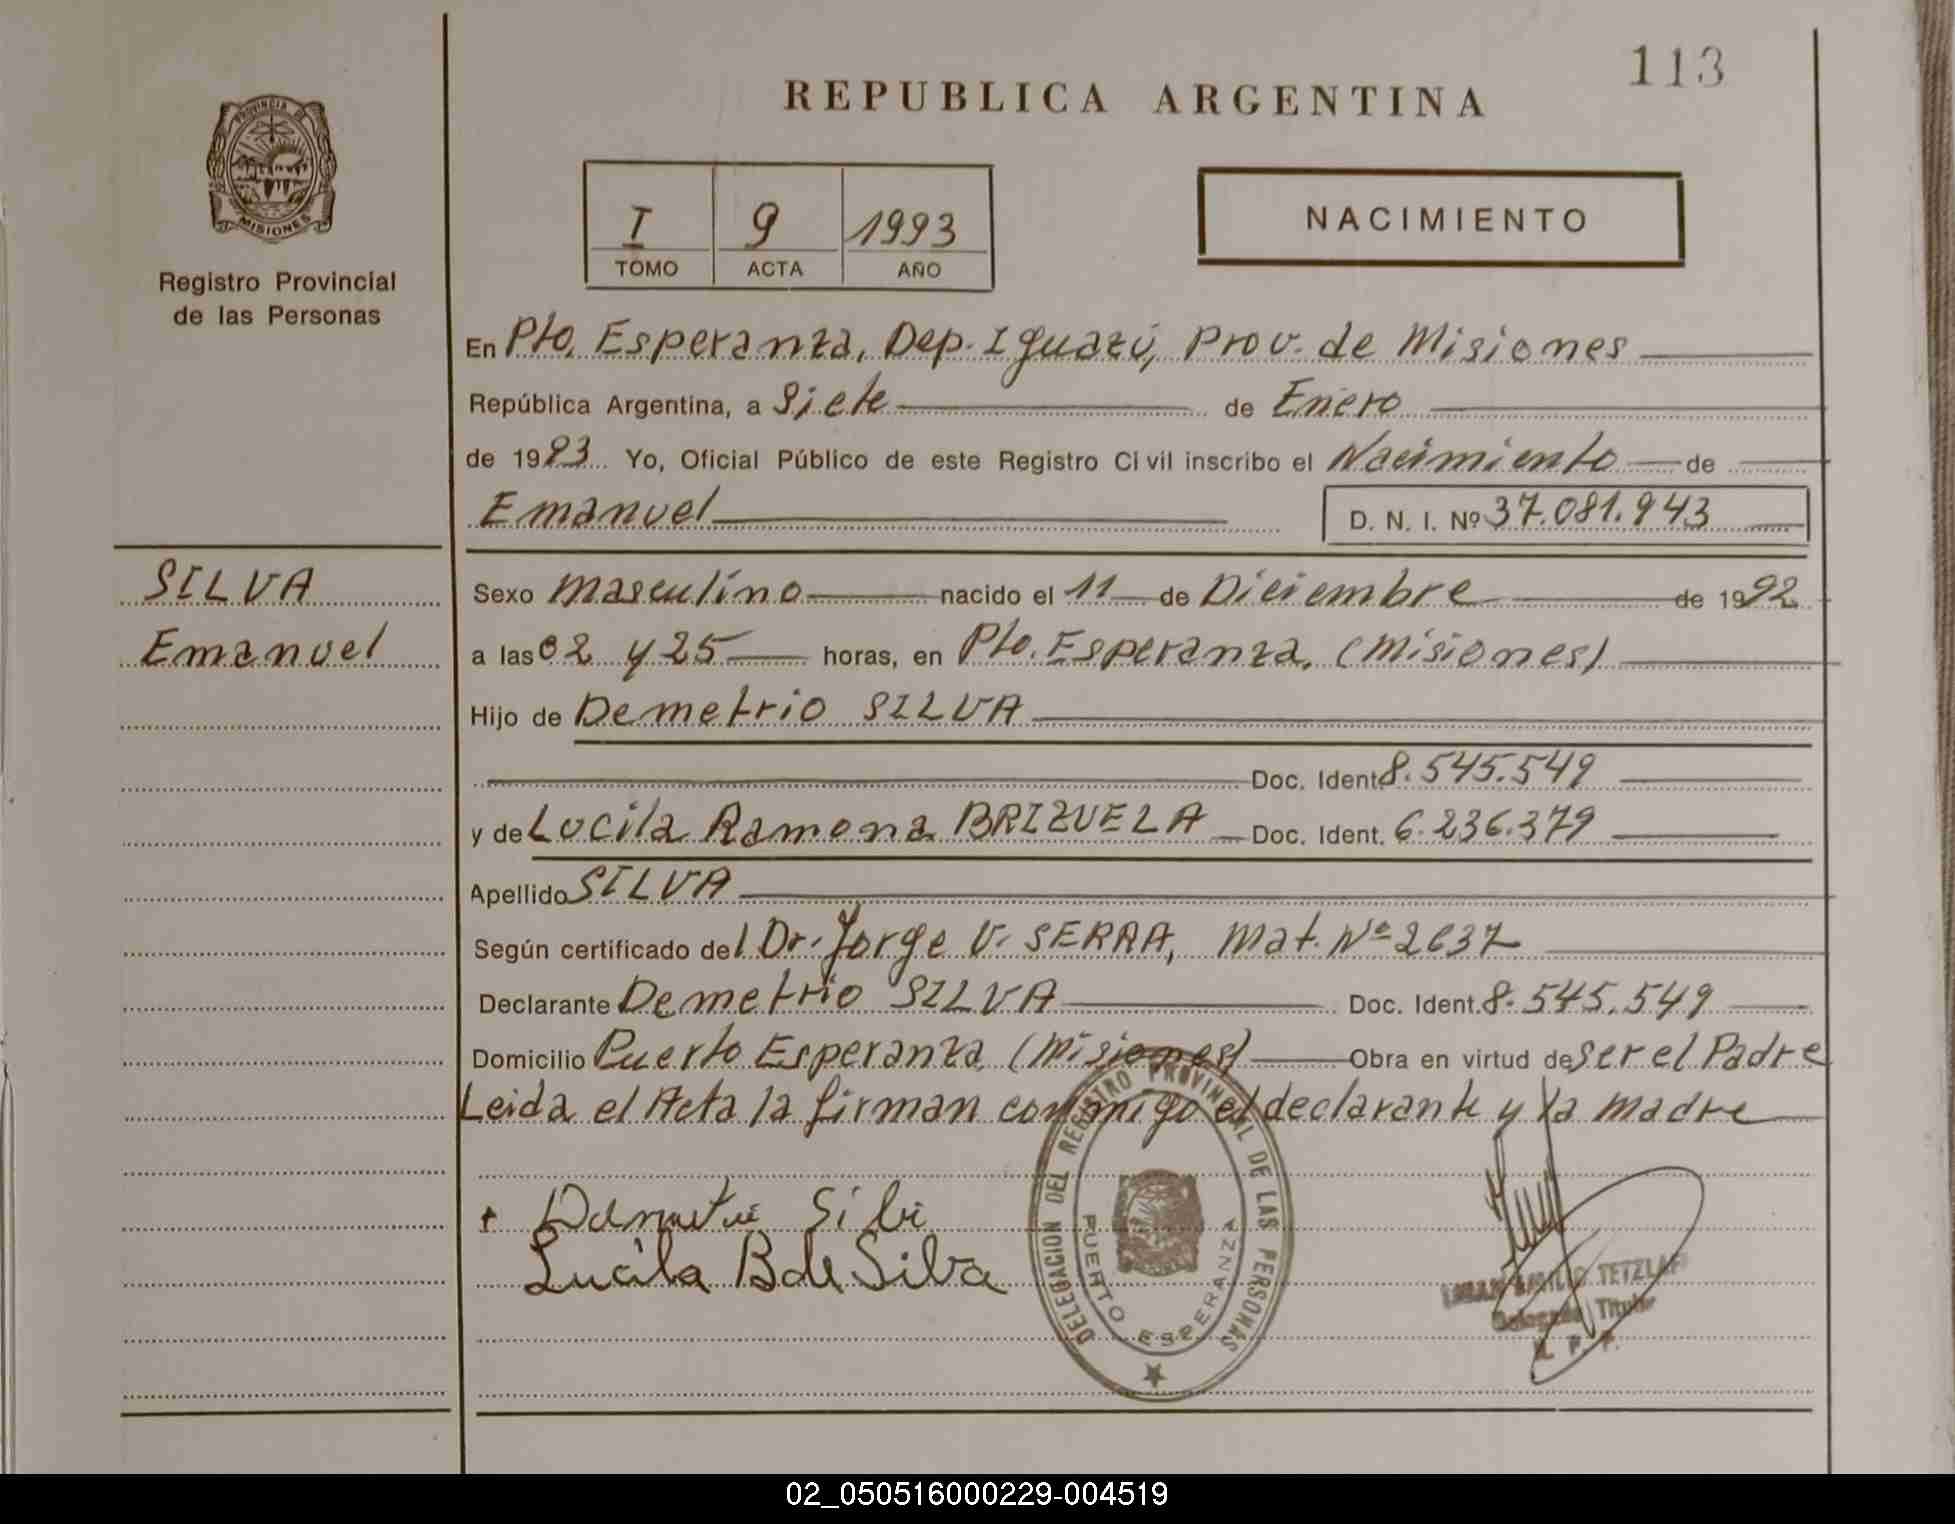 113
REPUBLICA ARGENTINA
PROVINCIA DE
MISIONES
Registro Provincial
de las Personas
I 9 1993
TOMO ACTA AÑO
NACIMIENTO
En Pto. Esperanza, Dep. Iguazú, Prov. de Misiones
República Argentina, a Siete de Enero
de 1993 Yo, Oficial Público de este Registro Civil inscribo el Nacimiento de
Emanuel D. N. I. Nº 37.081.943
SILVA
Emanuel
Sexo Masculino nacido el 11 de Diciembre de 1992
a las 02 y 25 horas, en Pto. Esperanza, (Misiones)
Hijo de Demetrio SILVA
Doc. Ident. 8.545.549
y de Lucila Ramona BRIZUELA Doc. Ident. 6.236.379
Apellido SILVA
Según certificado del Dr. Jorge V. SERRA, Mat. Nº 2637
Declarante Demetrio SILVA Doc. Ident. 8.545.549
Domicilio Puerto Esperanza (Misiones) Obra en virtud de ser el Padre
Leida el Acta la firman conmigo el declarante y la madre
Lucila B de Silva
DELEGACION DEL REGISTRO PROVINCIAL DE LAS PERSONAS
PUERTO ESPERANZA
TETZLAF
Delegado Titular
R. P. P.
02_050516000229-004519